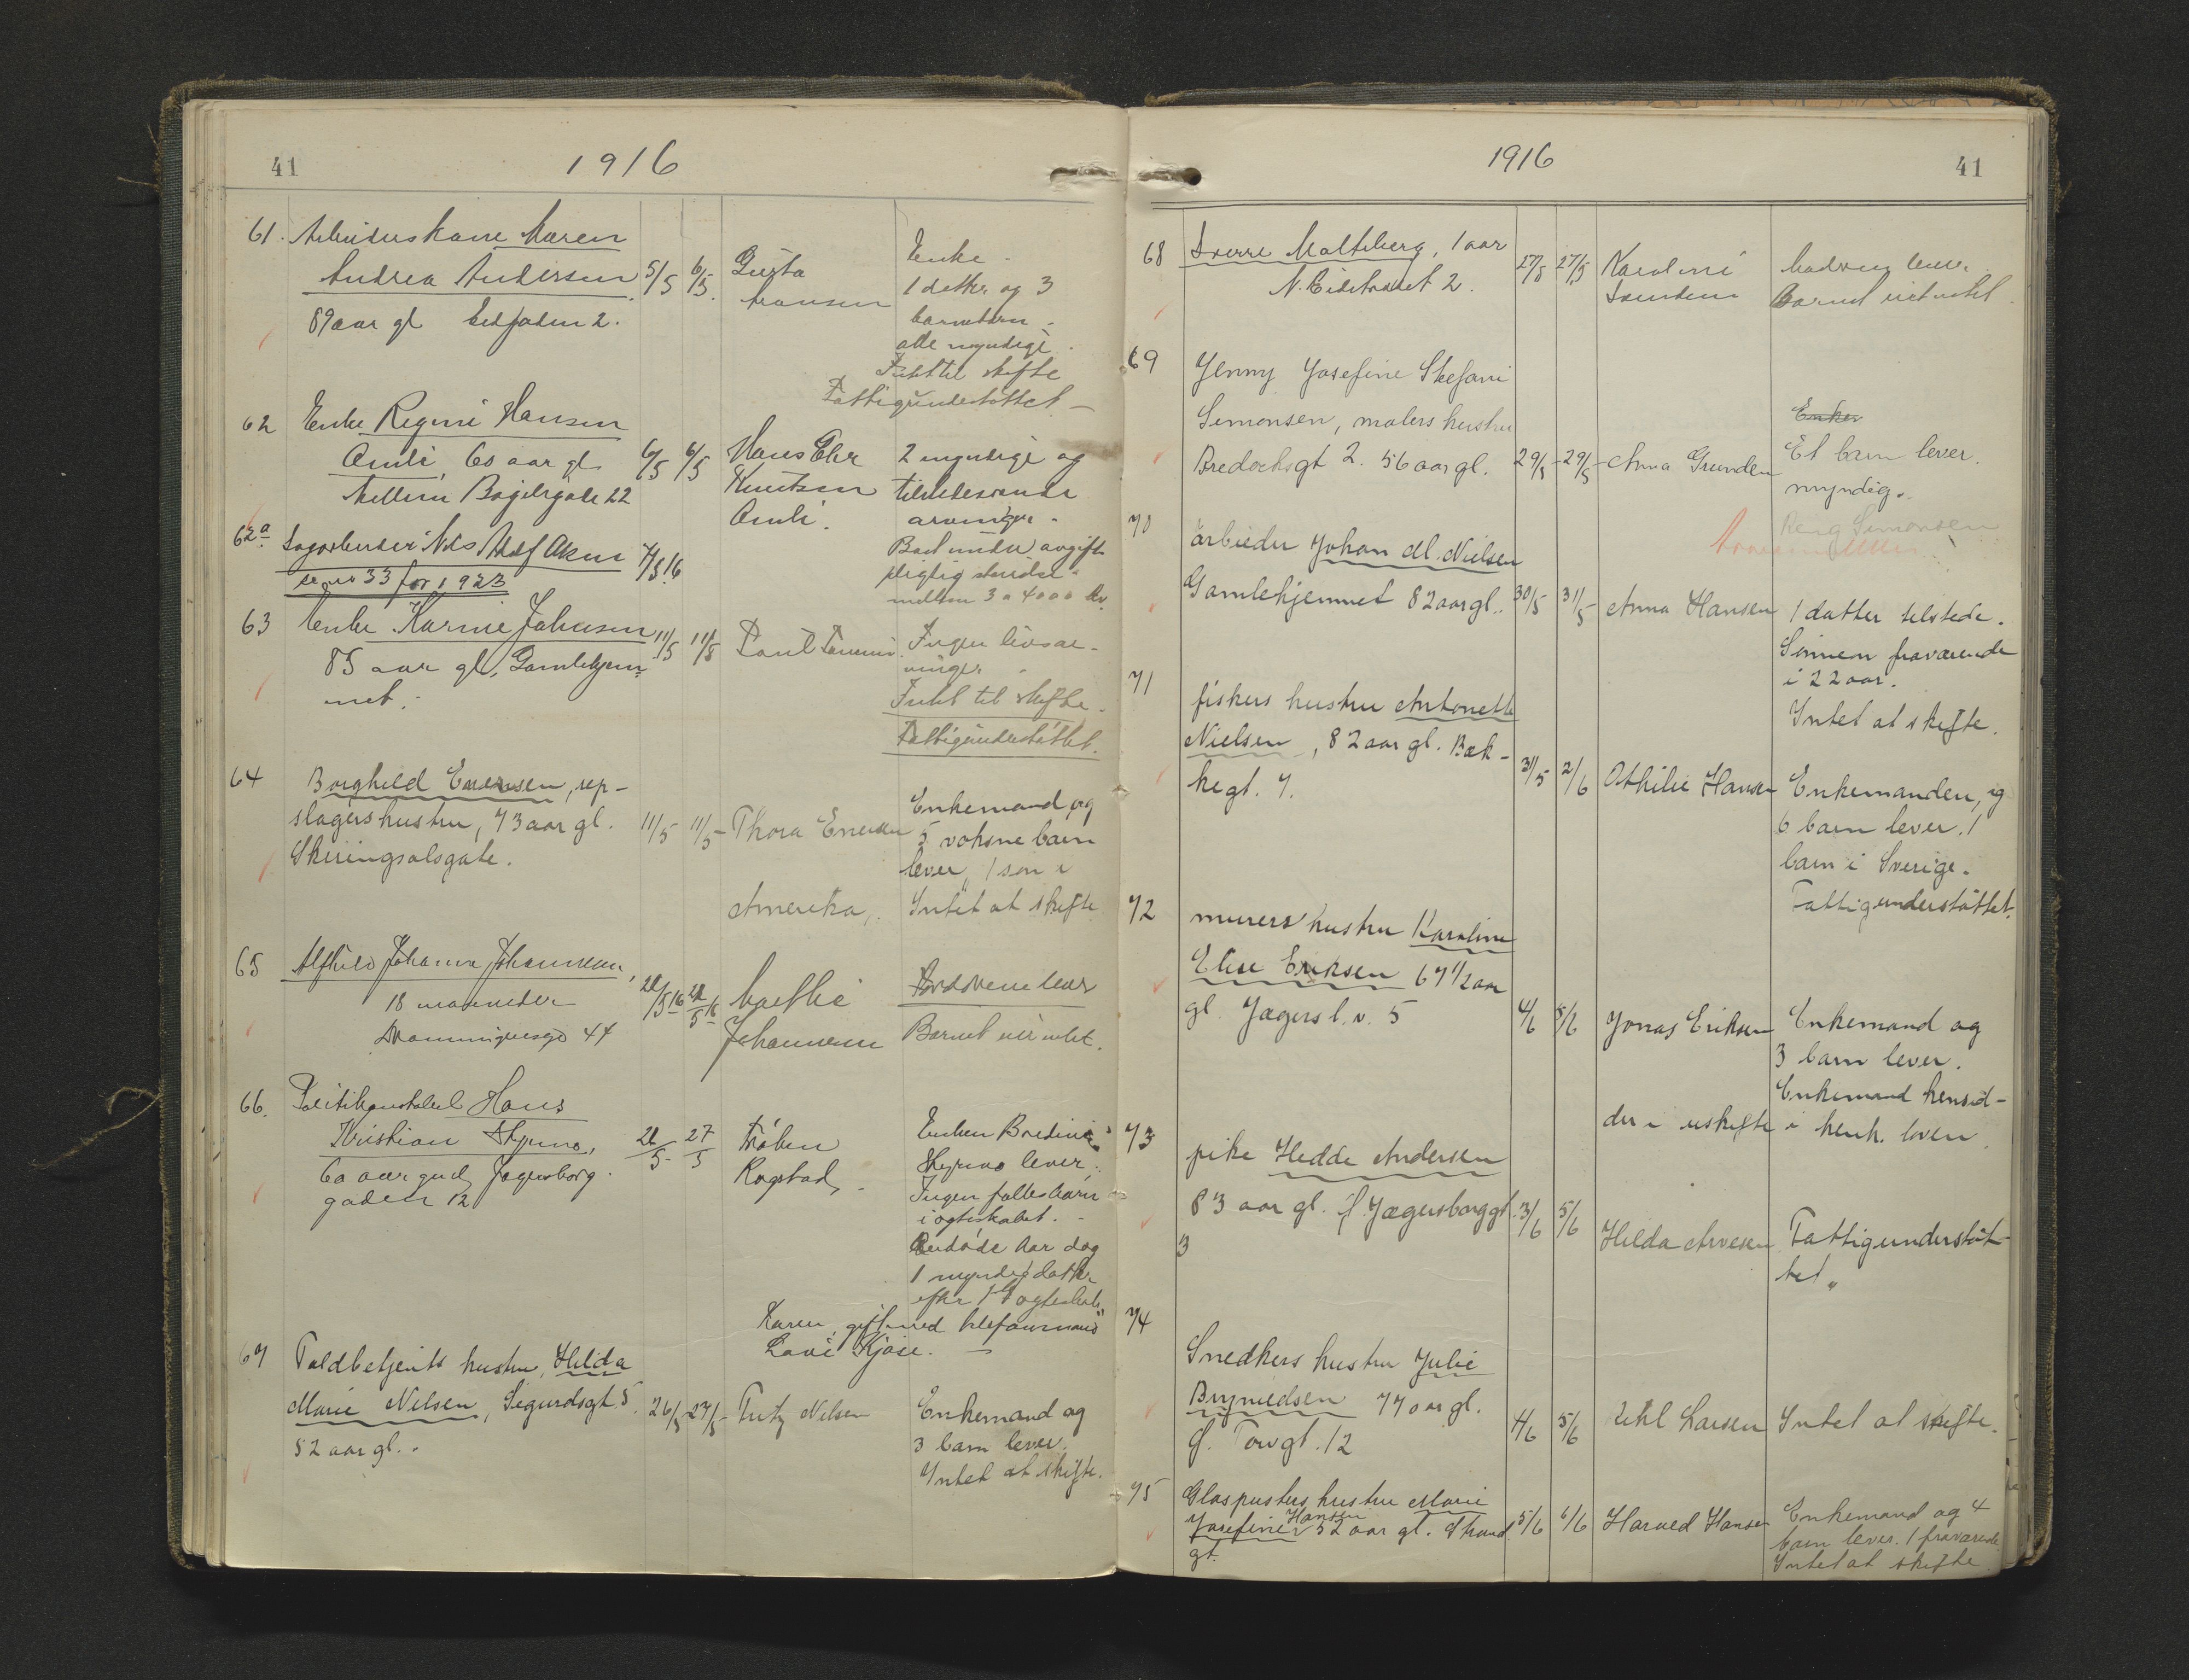 41
1916
61. Arbeiderskone Maren
Andrea Andersen 5/5 6/5.
89 aar gl
Gusta
Hansen
Enke -
1 datter og 3
barnebarn -
alle myndige.
Intet til skifte
Fattigunderstøttet -
62 Enke Regine Hansen
Omli, 60 aar gl 6/5 6/5
Mellem Bogersgate 22
Hans Chr
Knutsen
Omli.
2 myndige og
tilstedeværende
arvinger.
62a Nils Adolf
se no 33 for 1923
7/5.16
Bad under avgifts
pligtig
mellem 3 a 4000 kr.
63 Enke Karine Johansen 11/5 11/5
85 aar gl, Gamlehjem-
met.
Paul
Ingen livsar-
vinger.
Intet til skifte.
Fattigunderstøttet.
64 Borghild Evensen, rep-
slagers hustru, 73 aar gl. 11/5 11/5
Skiringsalsgate.
Thora Evensen
Enkemand og
5 voksne barn
lever, 1 søn i
Amerika, Intet at skifte
65 Alfhild Johanne Johannesen,
18 maaneder
Dronningensgd 44
Mathie
Johannesen
Forældrene lever
Barnet eier intet.
66. Politikonstabel Hans
Kristian
60 aar gml, Jegersborg
gaden 12
27/5
Rogstad
Enken Bredine
lever.
Ingen fællesbarn
i egteskabet. -
Avdøde har dog
1 myndig datter
efter 1ste egteskab,
Karen, gift med
Kjøse. -
67 Toldbetjents hustru, Hilda
Marie Nilsen, Sigurdsgt. 5. 26/5 27/5
52 aar gl.
Fritz Nilsen
Enkemand og
3 barn lever.
Intet at skifte.
1916
41
68 Sverre Maltheberg, 1 aar
2.
27/5 27/5
Karoline
Moderen lever.
Barnet eiet intet.
69 Jenny Josefine Stefani
Simonsen, malers hustru
Bredochsgt 2. 56 aar gl. 29/5 29/5 Anna Grunden
Enker
Et barn lever.
myndig.
Simonsen
70 arbeider Johan M. Nielsen
Gamlehjemmet 82 aar gl. 30/5 31/5 Anna Hansen
1 datter tilstede.
Sønnen fraværende
i 22 aar.
Intet at skifte.
71 fiskers hustru Antonette
Nielsen, 82 aar gl. Bæk-
kegt. 7. 31/5 2/6 Othilie Hansen
Enkemanden, og
6 barn lever. 1
barn i Sverige.
Fattigunderstøttet.
72 murers hustru Karoline
Elise Eriksen 67 1/2 aar
gl. Jægersb.v. 5 4/6 5/6 Jonas Eriksen
Enkemand og
3 barn lever.
Enkemand hensid-
der i uskifte i henh. loven
73 pike Hedda Andersen
83 aar gl. Jægersborggt. 3/6 5/6
3
Hilda Arvesen
Fattigunderstøt-
tet"
74 Snedkers hustru Julie
Brynildsen 77 aar gl.
Torvgt. 12 4/6 5/6
Larsen
Intet at skifte.
75 Glaspusters hustru Marie
Josefine Hansen 52 aar gl. Strand 5/6 6/6
gt.
Harald Hansen
Enkemand og 4
barn lever. 1 fraværende
Intet at skifte